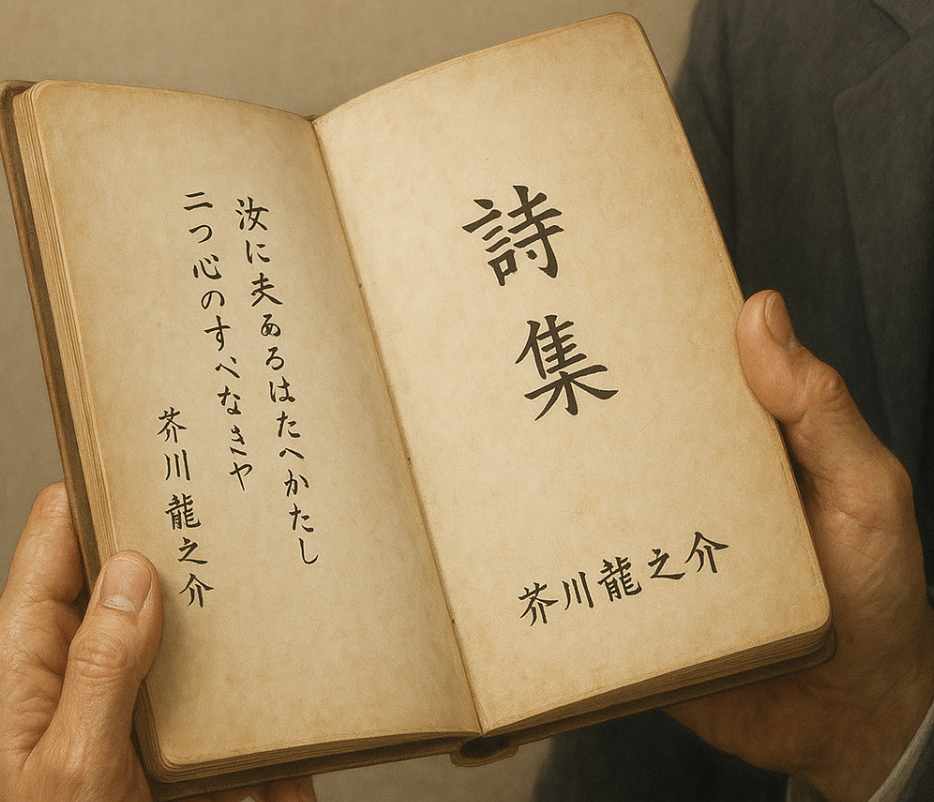 詩集
芥川龍之介
汝に夫あるはたへかたし
二つ心のすべなきや
芥川龍之介